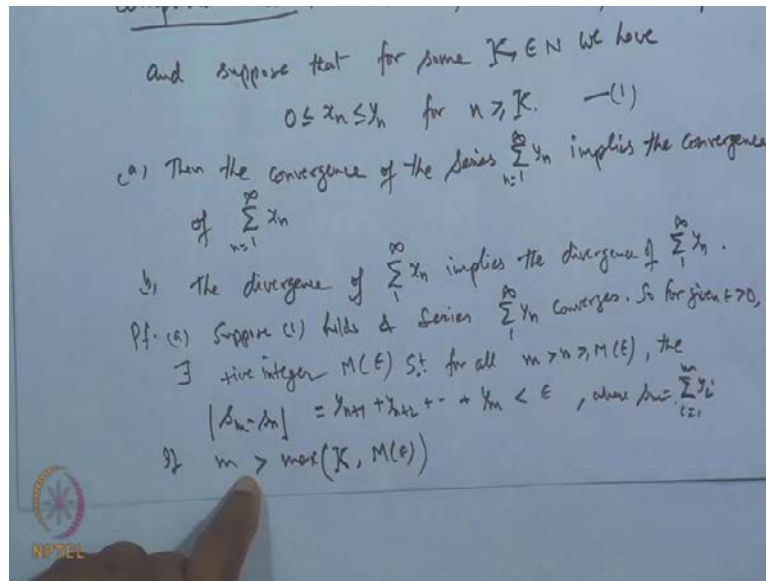 and suppose that for some K ∈ N we have
0 ≤ xn ≤ yn for n ≥ K. —(1)
(a) Then the convergence of the series ∑_{n=1}^{∞} yn implies the convergence
of ∑_{n=1}^{∞} xn
b, the divergence of ∑_{1}^{∞} xn implies the divergence of ∑_{1}^{∞} yn.
Pf. (a) Suppose (1) holds & Series ∑_{1}^{∞} yn converges. So for given ε>0,
∃ +ive integer M(ε) S.t. for all m>n≥M(ε), the
|sm-sn| = yn+1 + yn+2 + -- + ym < ε, where sm = ∑_{i=1}^{m} yi
If m > max(K, M(ε))
NPTEL